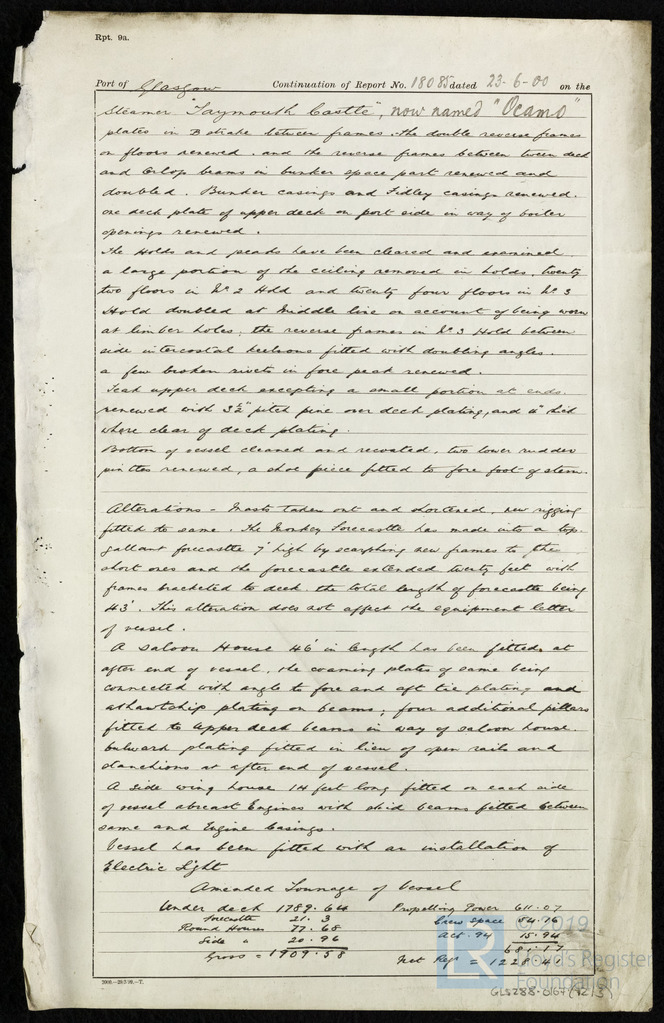 Rpt. 9a.
Port of Glasgow Continuation of Report No. 18085 dated 23-6-00 on the
Steamer "Taymouth Castle", now named "Ocamo"
plates in B strake between frames. the double reverse frames
on floors renewed. and the reverse frames between tween deck
and Orlop beams in bunker space part renewed and
doubled. Bunker casings and Fidley casings renewed.
one deck plate of upper deck on port side in way of boiler
openings renewed.
The Holds and peaks have been cleared and examined.
a large portion of the ceiling removed in holds, twenty
two floors in No 2 Hold and twenty four floors in No 3
Hold doubled at middle line on account of being worn
at limber holes; the reverse frames in No 3 Hold between
side intercostal keelsons fitted with doubling angles.
a few broken rivets in fore peak renewed.
Teak upper deck excepting a small portion at ends
renewed with 3½" pitch pine over deck plating, and 4" thick
where clear of deck plating.
Bottom of vessel cleaned and recoated. two lower rudder
pintles renewed, a shoe piece fitted to fore foot of stem.
Alterations - Masts taken out and shortened. new rigging
fitted to same. The Monkey Forecastle has made into a top-
gallant forecastle 7' high by scarphing new frames to the
short ones and the forecastle extended twenty feet with
frames bracketed to deck. the total length of forecastle being
43'. This alteration does not affect the equipment letter
of vessel.
A Saloon House 46' in length has been fitted, at
after end of vessel, the coaming plates of same being
connected with angle to fore and aft tie plating and
athwartship plating on beams; four additional pillars
fitted to upper deck beams in way of saloon house.
bulwark plating fitted in lieu of open rails and
stanchions at after end of vessel.
A side wing house 14 feet long fitted on each side
of vessel abreast Engines with skid beams fitted between
same and Engine Casings.
Vessel has been fitted with an installation of
Electric Light
Amended Tonnage of Vessel
Under deck 1789.64 Propelling Power 611.07
Forecastle 21.3 Crew space 54.16
Round Houses 77.68 Act. 94 15.94
Side " 20.96 681.17
Gross = 1909.58 Net Reg = 1228.41
© 2019
Lloyd's Register
Foundation
GLS288-0167 (2/3)